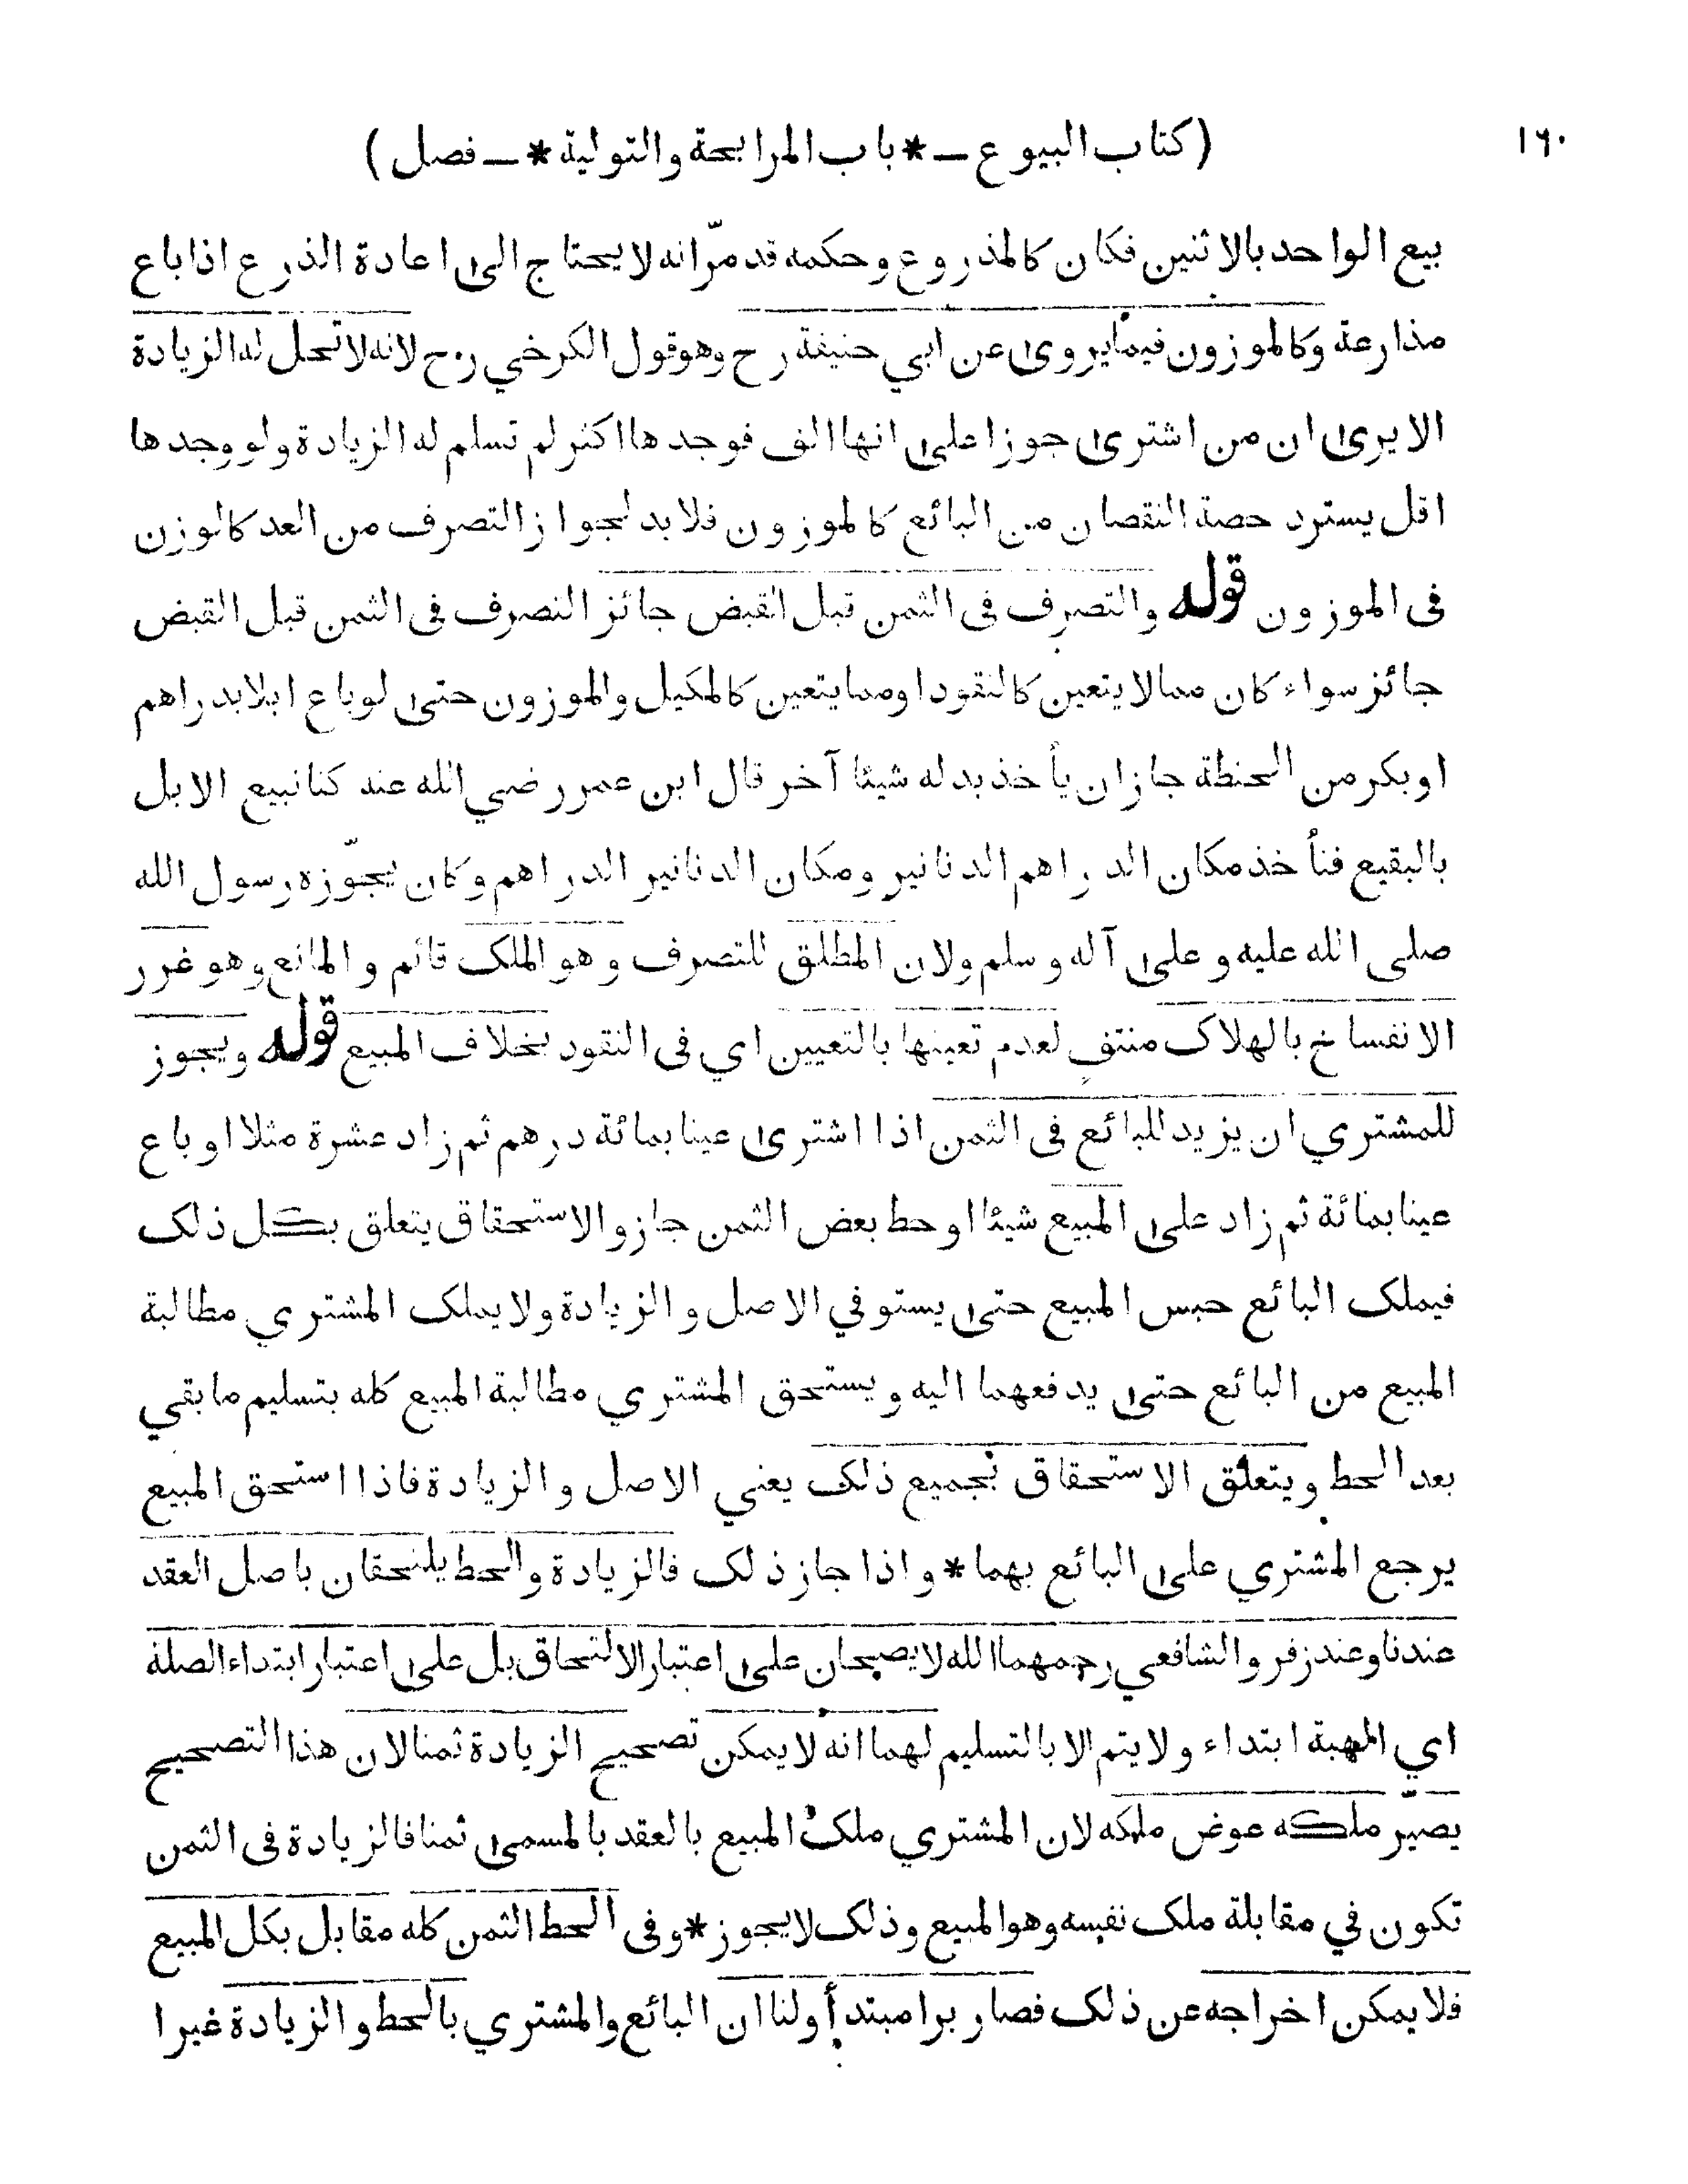 (كتاب البيوع — * باب المرابحة والتولية * — فصل) ١٦٠
بيع الواحد بالاثنين فكان كالمذروع وحكمه قد مرّ انه لا يحتاج الى اعادة الذرع اذا باع
مذارعة وكالموزون فيما يروى عن ابي حنيفة رح وهو قول الكرخي رح لانه لا تحل له الزيادة
الا يرى ان من اشترى جوزا على انها الف فوجدها اكثر لم تسلم له الزيادة ولو وجدها
اقل يسترد حصة النقصان من البائع كالموزون فلا بد لجواز التصرف من العد كالوزن
فى الموزون قوله والتصرف فى الثمن قبل القبض جائز التصرف فى الثمن قبل القبض
جائز سواء كان مما لا يتعين كالنقود او مما يتعين كالمكيل والموزون حتى لو باع ابلا بدراهم
او بكر من الحنطة جاز ان يأخذ بدله شيئا آخر قال ابن عمر رضي الله عنه كنا نبيع الابل
بالبقيع فنأخذ مكان الدراهم الدنانير ومكان الدنانير الدراهم وكان يجوّزه رسول الله
صلى الله عليه وعلى آله وسلم ولان المطلق للتصرف وهو الملك قائم والمانع وهو غرر
الانفساخ بالهلاك منتف لعدم تعينها بالتعيين اي فى النقود بخلاف المبيع قوله ويجوز
للمشتري ان يزيد للبائع فى الثمن اذا اشترى عينا بمائة درهم ثم زاد عشرة مثلا او باع
عينا بمائة ثم زاد على المبيع شيئا او حط بعض الثمن جاز والاستحقاق يتعلق بكل ذلك
فيملك البائع حبس المبيع حتى يستوفي الاصل والزيادة ولا يملك المشتري مطالبة
المبيع من البائع حتى يدفعهما اليه ويستحق المشتري مطالبة المبيع كله بتسليم ما بقي
بعد الحط ويتعلق الاستحقاق بجميع ذلك يعني الاصل والزيادة فاذا استحق المبيع
يرجع المشتري على البائع بهما * واذا جاز ذلك فالزيادة والحط يلتحقان باصل العقد
عندنا وعند زفر والشافعي رحمهما الله لا يصحان على اعتبار الالتحاق بل على اعتبار ابتداء الصلة
اي الهبة ابتداء ولا يتم الا بالتسليم لهما انه لا يمكن تصحيح الزيادة ثمنا لان هذا التصحيح
يصيّر ملكه عوض ملكه لان المشتري ملك المبيع بالعقد بالمسمى ثمنا فالزيادة فى الثمن
تكون في مقابلة ملك نفسه وهو المبيع وذلك لا يجوز * وفى الحط الثمن كله مقابل بكل المبيع
فلا يمكن اخراجه عن ذلك فصار برا مبتدأ ولنا ان البائع والمشتري بالحط والزيادة غيرا